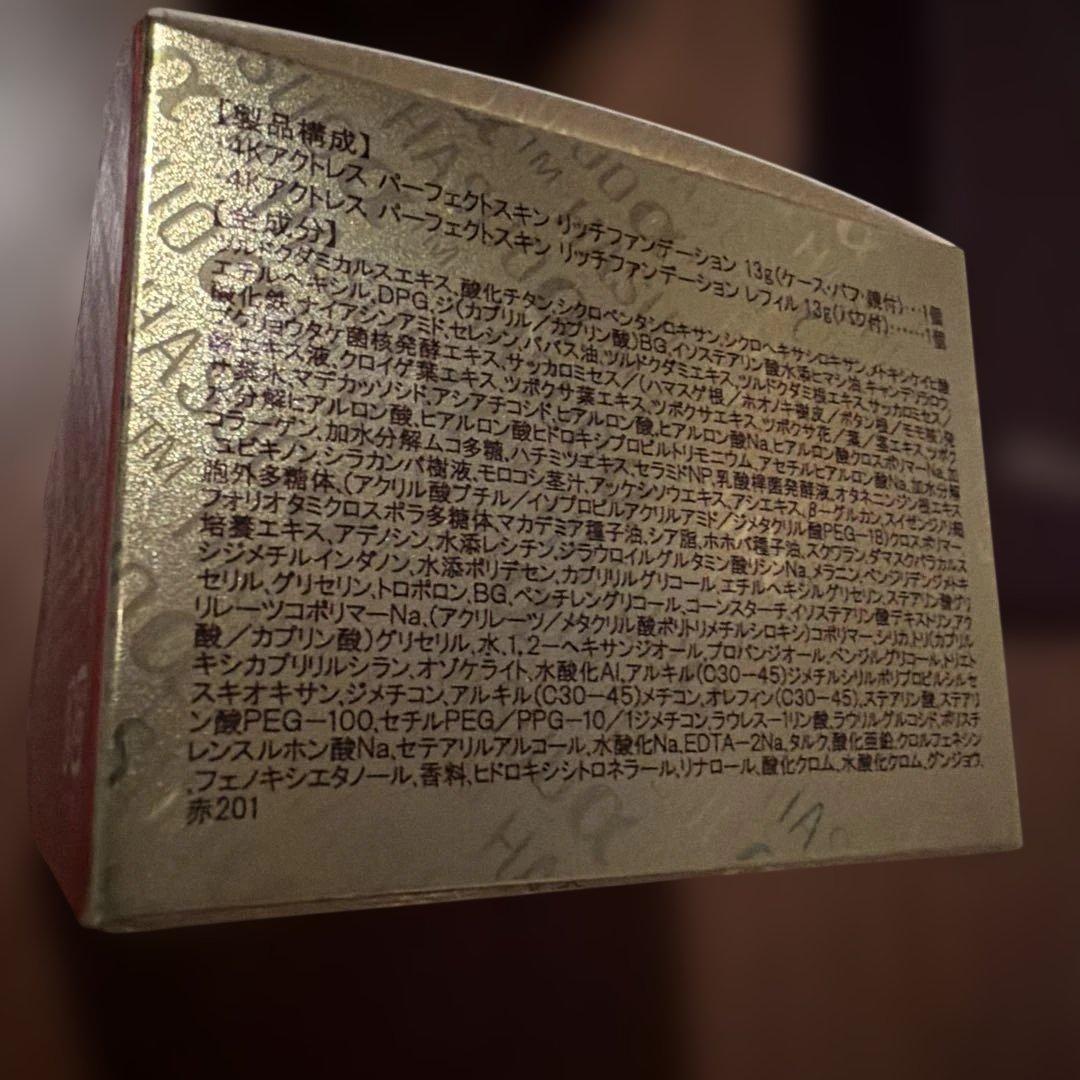 【製品構成】
・4Kアクトレス パーフェクトスキン リッチファンデーション 13g(ケース・パフ・鏡付)…1個
・4Kアクトレス パーフェクトスキン リッチファンデーション レフィル 13g(パフ付)……1個
【全成分】
ツルドクダミカルスエキス、酸化チタン、シクロペンタシロキサン、シクロヘキサシロキサン、メトキシケイヒ酸
エチルヘキシル、DPG、ジ(カプリル/カプリン酸)BG、イソステアリン酸水添ヒマシ油、キャンデリラロウ、
酸化鉄、ナイアシンアミド、セレシン、ババス油、ツルドクダミエキス、ツルドクダミ根エキス、サッカロミセス/
フクリョウタケ菌核発酵エキス、サッカロミセス/(ハマスゲ根/ホオノキ樹皮/ボタン根/モモ核)発
酵エキス液、クロイゲ葉エキス、ツボクサ葉エキス、ツボクサエキス、ツボクサ花/葉/茎エキス、ツボク
サ葉水、マデカッソシド、アシアチコシド、ヒアルロン酸、ヒアルロン酸Na、ヒアルロン酸クロスポリマーNa、加
水分解ヒアルロン酸、ヒアルロン酸ヒドロキシプロピルトリモニウム、アセチルヒアルロン酸Na、加水分解
コラーゲン、加水分解ムコ多糖、ハチミツエキス、セラミドNP、乳酸桿菌発酵液、オタネニンジン根エキス
ユビキノン、シラカンバ樹液、モロコシ茎汁、アッケシソウエキス、アシエキス、β-グルカン、スイゼンジノリ細
胞外多糖体、(アクリル酸ブチル/イソプロピルアクリルアミド/ジメタクリル酸PEG-18)クロスポリマー
フォリオタミクロスポラ多糖体、マカデミア種子油、シア脂、ホホバ種子油、スクワラン、ダマスクバラカルス
培養エキス、アデノシン、水添レシチン、ジラウロイルグルタミン酸リシンNa、メラニン、ベンジリデンジメトキ
シジメチルインダノン、水添ポリデセン、カプリリルグリコール、エチルヘキシルグリセリン、ステアリン酸グリ
セリル、グリセリン、トロポロン、BG、ペンチレングリコール、コーンスターチ、イソステアリン酸デキストリン、アク
リレーツコポリマーNa、(アクリレーツ/メタクリル酸ポリトリメチルシロキシ)コポリマー、シリカ、トリ(カプリル
酸/カプリン酸)グリセリル、水、1,2-ヘキサンジオール、プロパンジオール、ベンジルグリコール、トリエト
キシカプリリルシラン、オゾケライト、水酸化Al、アルキル(C30-45)ジメチルシリルポリプロピルシルセ
スキオキサン、ジメチコン、アルキル(C30-45)メチコン、オレフィン(C30-45)、ステアリン酸、ステアリ
ン酸PEG-100、セチルPEG/PPG-10/1ジメチコン、ラウレス-1リン酸、ラウリルグルコシド、ポリスチ
レンスルホン酸Na、セテアリルアルコール、水酸化Na、EDTA-2Na、タルク、酸化亜鉛、クロルフェネシン
、フェノキシエタノール、香料、ヒドロキシシトロネラール、リナロール、酸化クロム、水酸化クロム、グンジョウ、
赤201